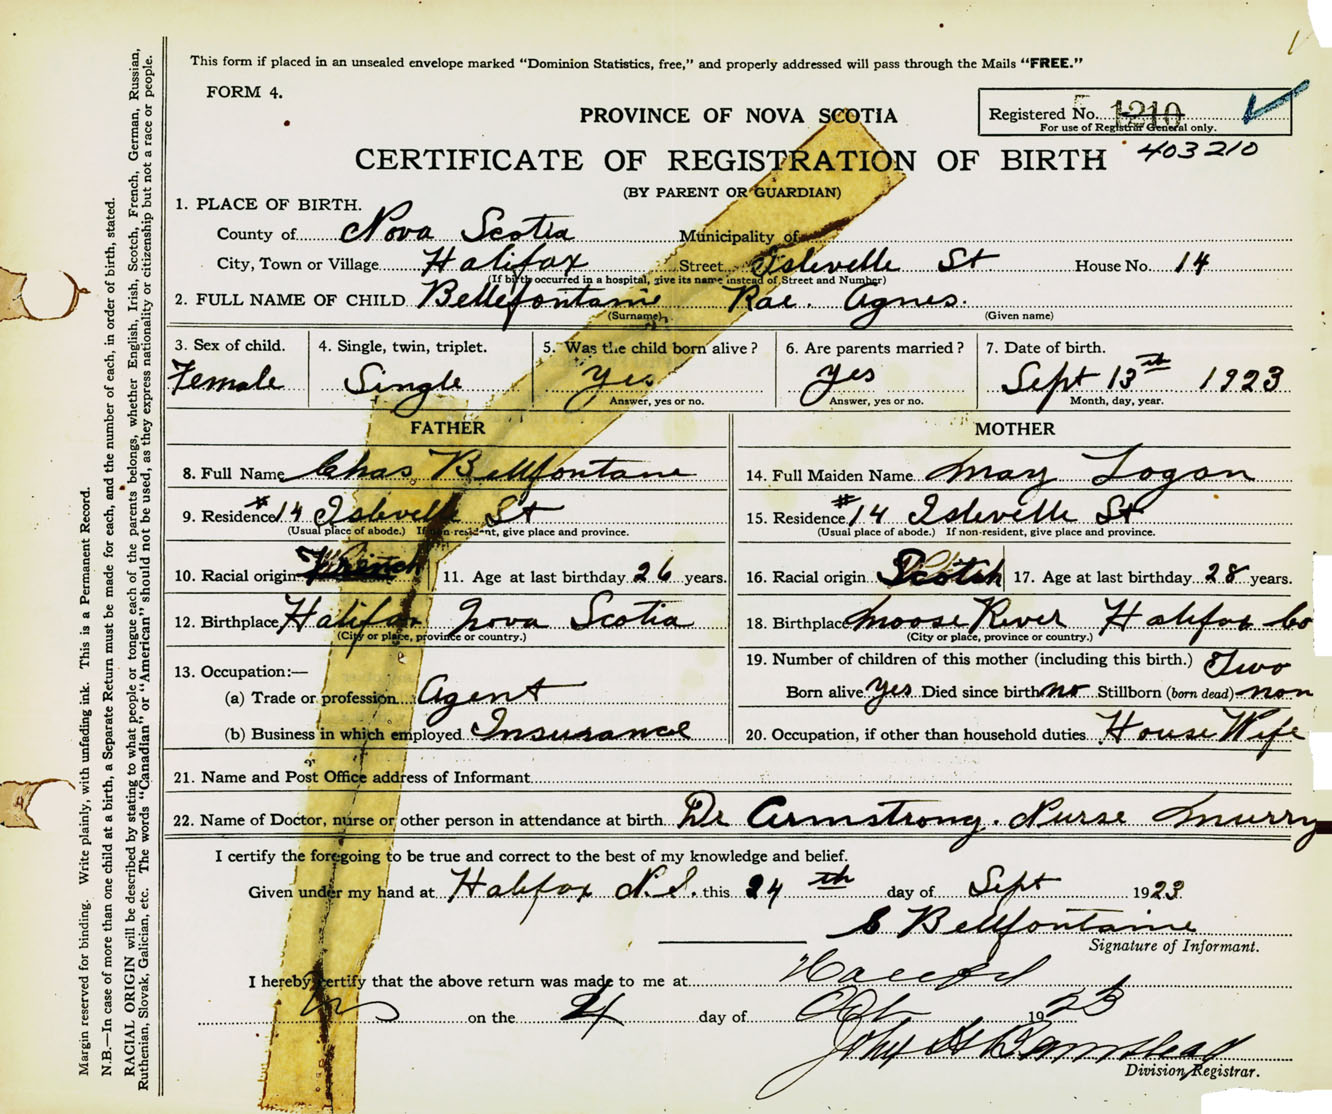 This form if placed in an unsealed envelope marked "Dominion Statistics, free," and properly addressed will pass through the Mails "FREE."
FORM 4.
Registered No. 1210
For use of Registrar General only.
403210
PROVINCE OF NOVA SCOTIA
CERTIFICATE OF REGISTRATION OF BIRTH
(BY PARENT OR GUARDIAN)
1. PLACE OF BIRTH.
County of Nova Scotia Municipality of
City, Town or Village Halifax Street Isleville St House No. 14
(If birth occurred in a hospital, give its name instead of Street and Number)
2. FULL NAME OF CHILD Bellefontaine Rae. Agnes.
(Surname) (Given name)
3. Sex of child. 4. Single, twin, triplet. 5. Was the child born alive? 6. Are parents married? 7. Date of birth.
Female Single Yes Yes Sept 13th 1923
Answer, yes or no. Answer, yes or no. Month, day, year.
FATHER
8. Full Name Chas Bellfontane
9. Residence #14 Isleville St
(Usual place of abode.) If non-resident, give place and province.
10. Racial origin French 11. Age at last birthday 26 years.
12. Birthplace Halifax Nova Scotia
(City or place, province or country.)
13. Occupation:—
(a) Trade or profession Agent
(b) Business in which employed Insurance
MOTHER
14. Full Maiden Name May Logan
15. Residence #14 Isleville St
(Usual place of abode.) If non-resident, give place and province.
16. Racial origin Scotch 17. Age at last birthday 28 years.
18. Birthplace Moose River Halifax Co
(City or place, province or country.)
19. Number of children of this mother (including this birth.) Two
Born alive yes Died since birth no Stillborn (born dead) non
20. Occupation, if other than household duties House Wife
21. Name and Post Office address of Informant
22. Name of Doctor, nurse or other person in attendance at birth Dr Armstrong. Nurse Murry
I certify the foregoing to be true and correct to the best of my knowledge and belief.
Given under my hand at Halifax N.S. this 24th day of Sept 1923
C Bellfontaine
Signature of Informant.
I hereby certify that the above return was made to me at Halifax
on the 4 day of Oct 1923
John
Division Registrar.
Margin reserved for binding. Write plainly, with unfading ink. This is a Permanent Record.
N.B.—In case of more than one child at a birth, a Separate Return must be made for each, and the number of each, in order of birth, stated.
RACIAL ORIGIN will be described by stating to what people or tongue each of the parents belongs, whether English, Irish, Scotch, French, German, Russian,
Ruthenian, Slovak, Galician, etc. The words "Canadian" or "American" should not be used, as they express nationality or citizenship but not a race or people.